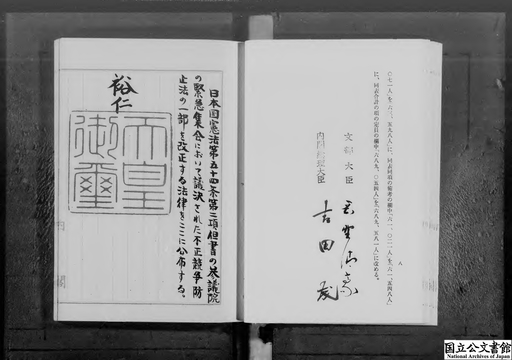 〇七一人」を「六三、五九八人」に、同表同項の備考の欄中「六一、〇二一人」を「六一、五四八人」
に、同表合計の項の定員の欄中「六八九、〇五四人」を「六八九、五八一人」に改める。
八
文部大臣
内閣総理大臣
吉田茂
日本国憲法第五十四条第二項但書の参議院
の緊急集会において議決された不正競争防
止法の一部を改正する法律をここに公布する。
裕仁
天皇
御璽
国立公文書館
National Archives of Japan